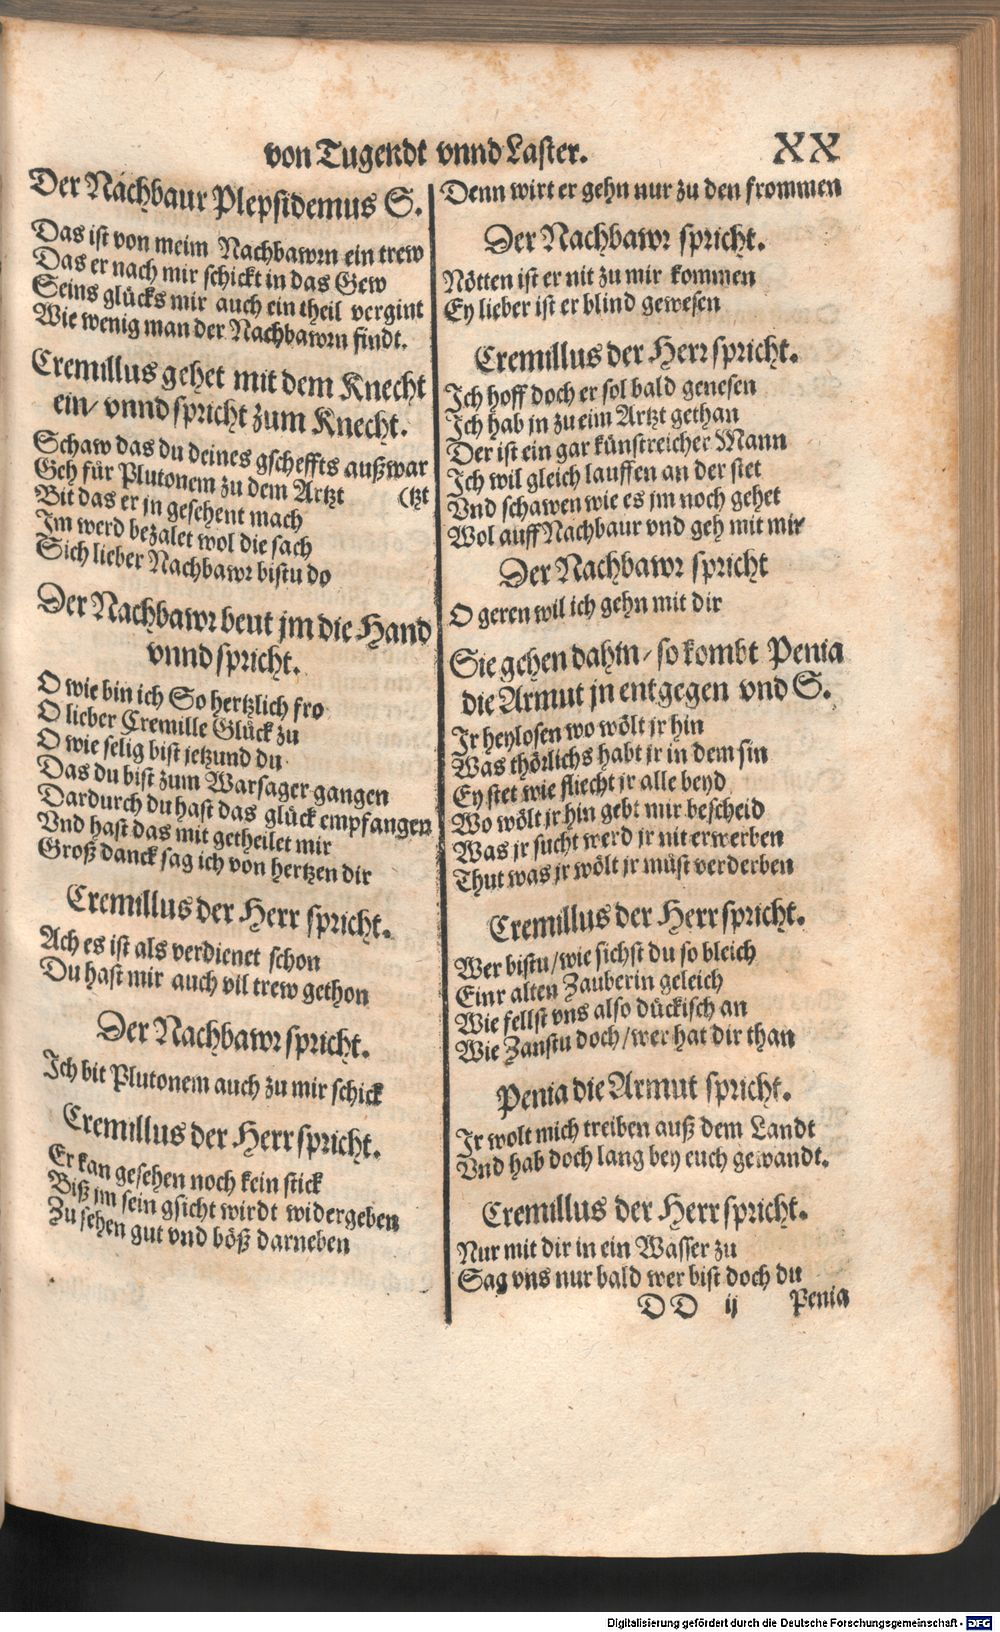 von Tugendt vnnd Laster. XX
Der Nachbaur Plepsidemus S.
Das ist von meim Nachbawrn ein trew
Das er nach mir schickt in das Gew
Seins glücks mir auch ein theil vergint
Wie wenig man der Nachbawrn findt.
Cremillus gehet mit dem Knecht
ein/ vnnd spricht zum Knecht.
Schaw das du deines gscheffts außwar
Geh für Plutonem zu dem Artzt (tzt
Bit das er jn gesehent mach
Im werd bezalet wol die sach
Sich lieber Nachbawr bistu do
Der Nachbawr beut jm die Hand
vnnd spricht.
O wie bin ich So hertzlich fro
O lieber Cremille Glück zu
O wie selig bist jetzund du
Das du bist zum Warsager gangen
Dardurch du hast das glück empfangen
Vnd hast das mit getheilet mir
Groß danck sag ich von hertzen dir
Cremillus der Herr spricht.
Ach es ist als verdienet schon
Du hast mir auch vil trew gethon
Der Nachbawr spricht.
Ich bit Plutonem auch zu mir schick
Cremillus der Herr spricht.
Er kan gesehen noch kein stick
Biß jm sein gsicht wirdt widergeben
Zu sehen gut vnd böß darneben
Denn wirt er gehn nur zu den frommen
Der Nachbawr spricht.
Nötten ist er nit zu mir kommen
Ey lieber ist er blind gewesen
Cremillus der Herr spricht.
Ich hoff doch er sol bald genesen
Ich hab jn zu eim Artzt gethan
Der ist ein gar künstreicher Mann
Ich wil gleich lauffen an der stet
Vnd schawen wie es jm noch gehet
Wol auff Nachbaur vnd geh mit mir
Der Nachbawr spricht
O geren wil ich gehn mit dir
Sie gehen dahin/ so kombt Penia
die Armut jn entgegen vnd S.
Ir heylosen wo wölt jr hin
Was thörlichs habt jr in dem sin
Ey stet wie fliecht jr alle beyd
Wo wölt jr hin gebt mir bescheid
Was jr sucht werd jr nit erwerben
Thut was jr wölt jr müst verderben
Cremillus der Herr spricht.
Wer bistu/ wie sichst du so bleich
Einr alten Zauberin geleich
Wie fellst vns also dückisch an
Wie Zanstu doch/ wer hat dir than
Penia die Armut spricht.
Ir wolt mich treiben auß dem Landt
Vnd hab doch lang bey euch gewandt.
Cremillus der Herr spricht.
Nur mit dir in ein Wasser zu
Sag vns nur bald wer bist doch du
DD ij Penia
Digitalisierung gefördert durch die Deutsche Forschungsgemeinschaft - DFG